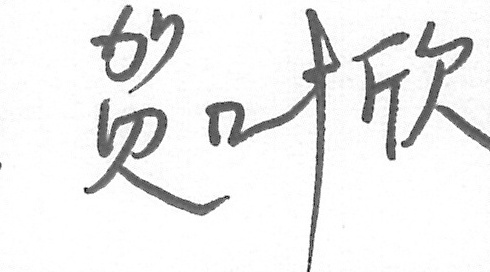 贺叶欣